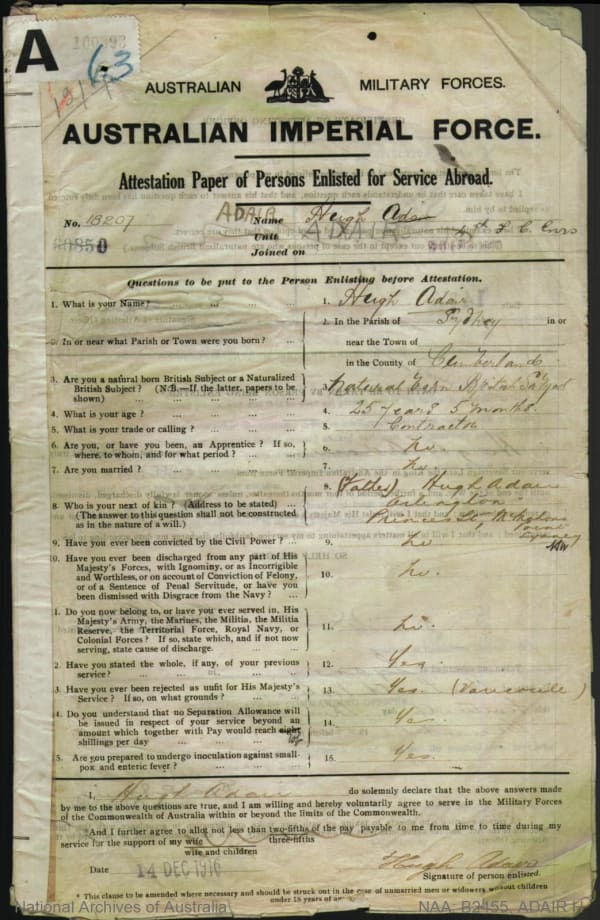 A
63
AUSTRALIAN MILITARY FORCES.
AUSTRALIAN IMPERIAL FORCE.
Attestation Paper of Persons Enlisted for Service Abroad.
No. 18207 ADAIR Name Hugh Adair
ADAIR
Unit
Joined on
Questions to be put to the Person Enlisting before Attestation.
1. What is your Name? ... ... ... ... 1. Hugh Adair
2. In or near what Parish or Town were you born? ... 2. In the Parish of Sydney in or
near the Town of
in the County of Cumberland
3. Are you a natural born British Subject or a Naturalized
British Subject? (N.B.—If the latter, papers to be
shown) ... ... ... ... 3. Natural Born British Subject
4. What is your age? ... ... ... ... 4. 25 years 5 months.
5. What is your trade or calling? ... ... ... 5. Contractor
6. Are you, or have you been, an Apprentice? If so,
where, to whom, and for what period? ... ... 6. No.
7. Are you married? ... ... ... ... 7. No.
8. Who is your next of kin? (Address to be stated) ...
(The answer to this question shall not be construed
as in the nature of a will.) 8. (Father) Hugh Adair
Arlington
Princes St, McMahons
Point
Sydney
NSW
9. Have you ever been convicted by the Civil Power? ... 9. No
10. Have you ever been discharged from any part of His
Majesty's Forces, with Ignominy, or as Incorrigible
and Worthless, or on account of Conviction of Felony,
or of a Sentence of Penal Servitude, or have you
been dismissed with Disgrace from the Navy? ... 10. No.
1. Do you now belong to, or have you ever served in, His
Majesty's Army, the Marines, the Militia, the Militia
Reserve, the Territorial Force, Royal Navy, or
Colonial Forces? If so, state which, and if not now
serving, state cause of discharge. 11. No.
2. Have you stated the whole, if any, of your previous
service? ... ... ... 12. Yes.
3. Have you ever been rejected as unfit for His Majesty's
Service? If so, on what grounds? ... ... 13. Yes. (Varicocele)
4. Do you understand that no Separation Allowance will
be issued in respect of your service beyond an
amount which together with Pay would reach eight
shillings per day ... ... ... 14. Yes
5. Are you prepared to undergo inoculation against small-
pox and enteric fever? ... ... ... 15. Yes.
I, Hugh Adair do solemnly declare that the above answers made
by me to the above questions are true, and I am willing and hereby voluntarily agree to serve in the Military Forces
of the Commonwealth of Australia within or beyond the limits of the Commonwealth.
*And I further agree to allot not less than two-fifths of the pay payable to me from time to time during my
three-fifths
service for the support of my wife
wife and children
Date 14 DEC 1916 Hugh Adair
Signature of person enlisted.
* This clause to be amended where necessary and should be struck out in the case of unmarried men or widowers without children
under 18 years of age.
National Archives of Australia NAA: B2455, ADAIR H